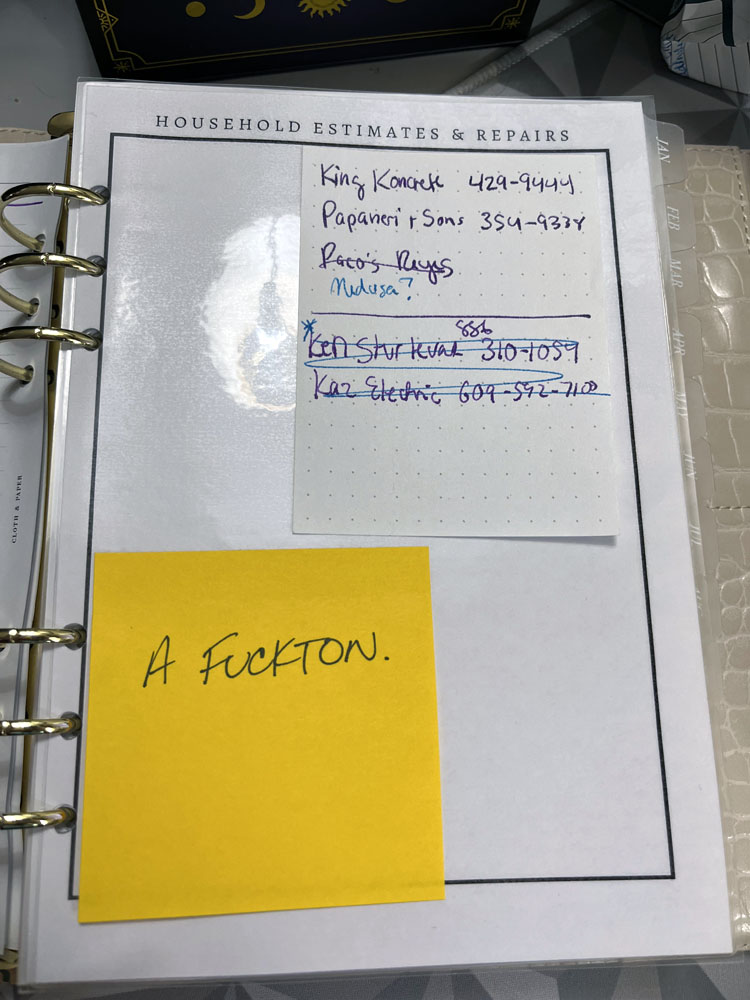 HOUSEHOLD ESTIMATES & REPAIRS
King Koncrete 429-9444
Papaneri + Sons 354-9338
Paco's Reyes
Medusa?
886
*Ken Sturtevat 310-1059
Kaz Electric 609-592-7100
A FUCKTON.
CLOTH & PAPER
JAN
FEB
MAR
APR
JUN